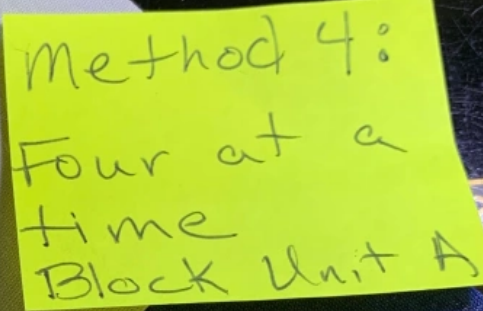 Method 4:
Four at a
time
Block Unit A